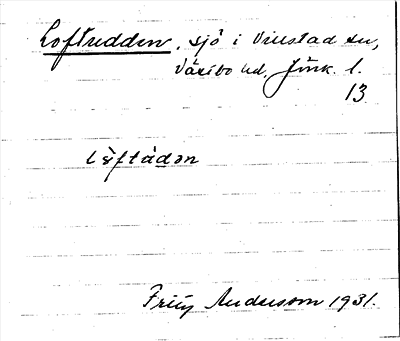 Loftudden, sjö i Villstad sn,
Västbo hd, Jönk. l.
13
löftådən
Andersson 1931.